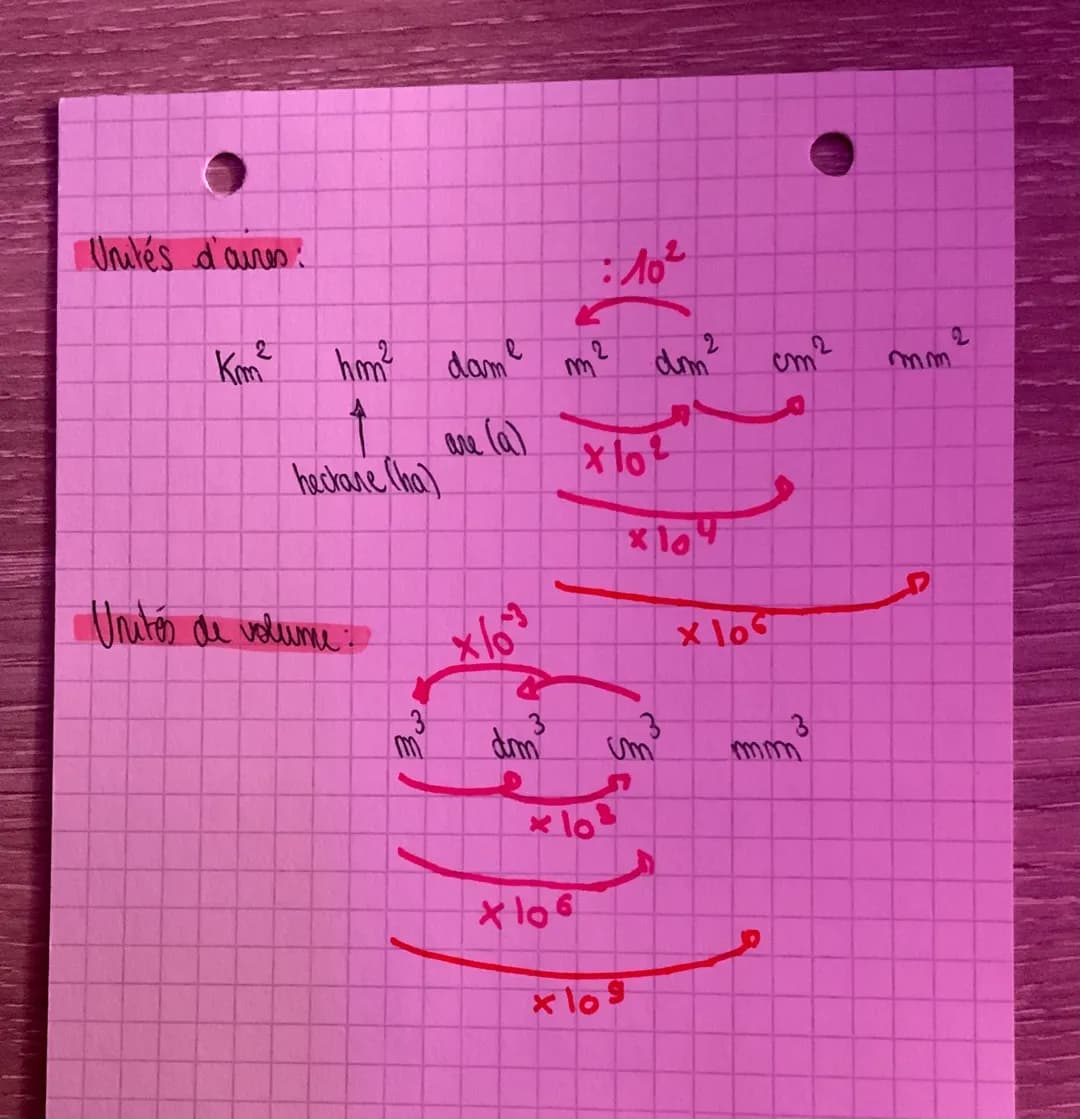 Unités d'aires :
: 10²
Km² hm² dam² m² dm² cm² mm²
are (a)
x 10²
hectare (ha)
x 10⁴
x 10⁶
Unités de volume :
x 10⁻³
m³ dm³ cm³ mm³
x 10³
x 10⁶
x 10⁹